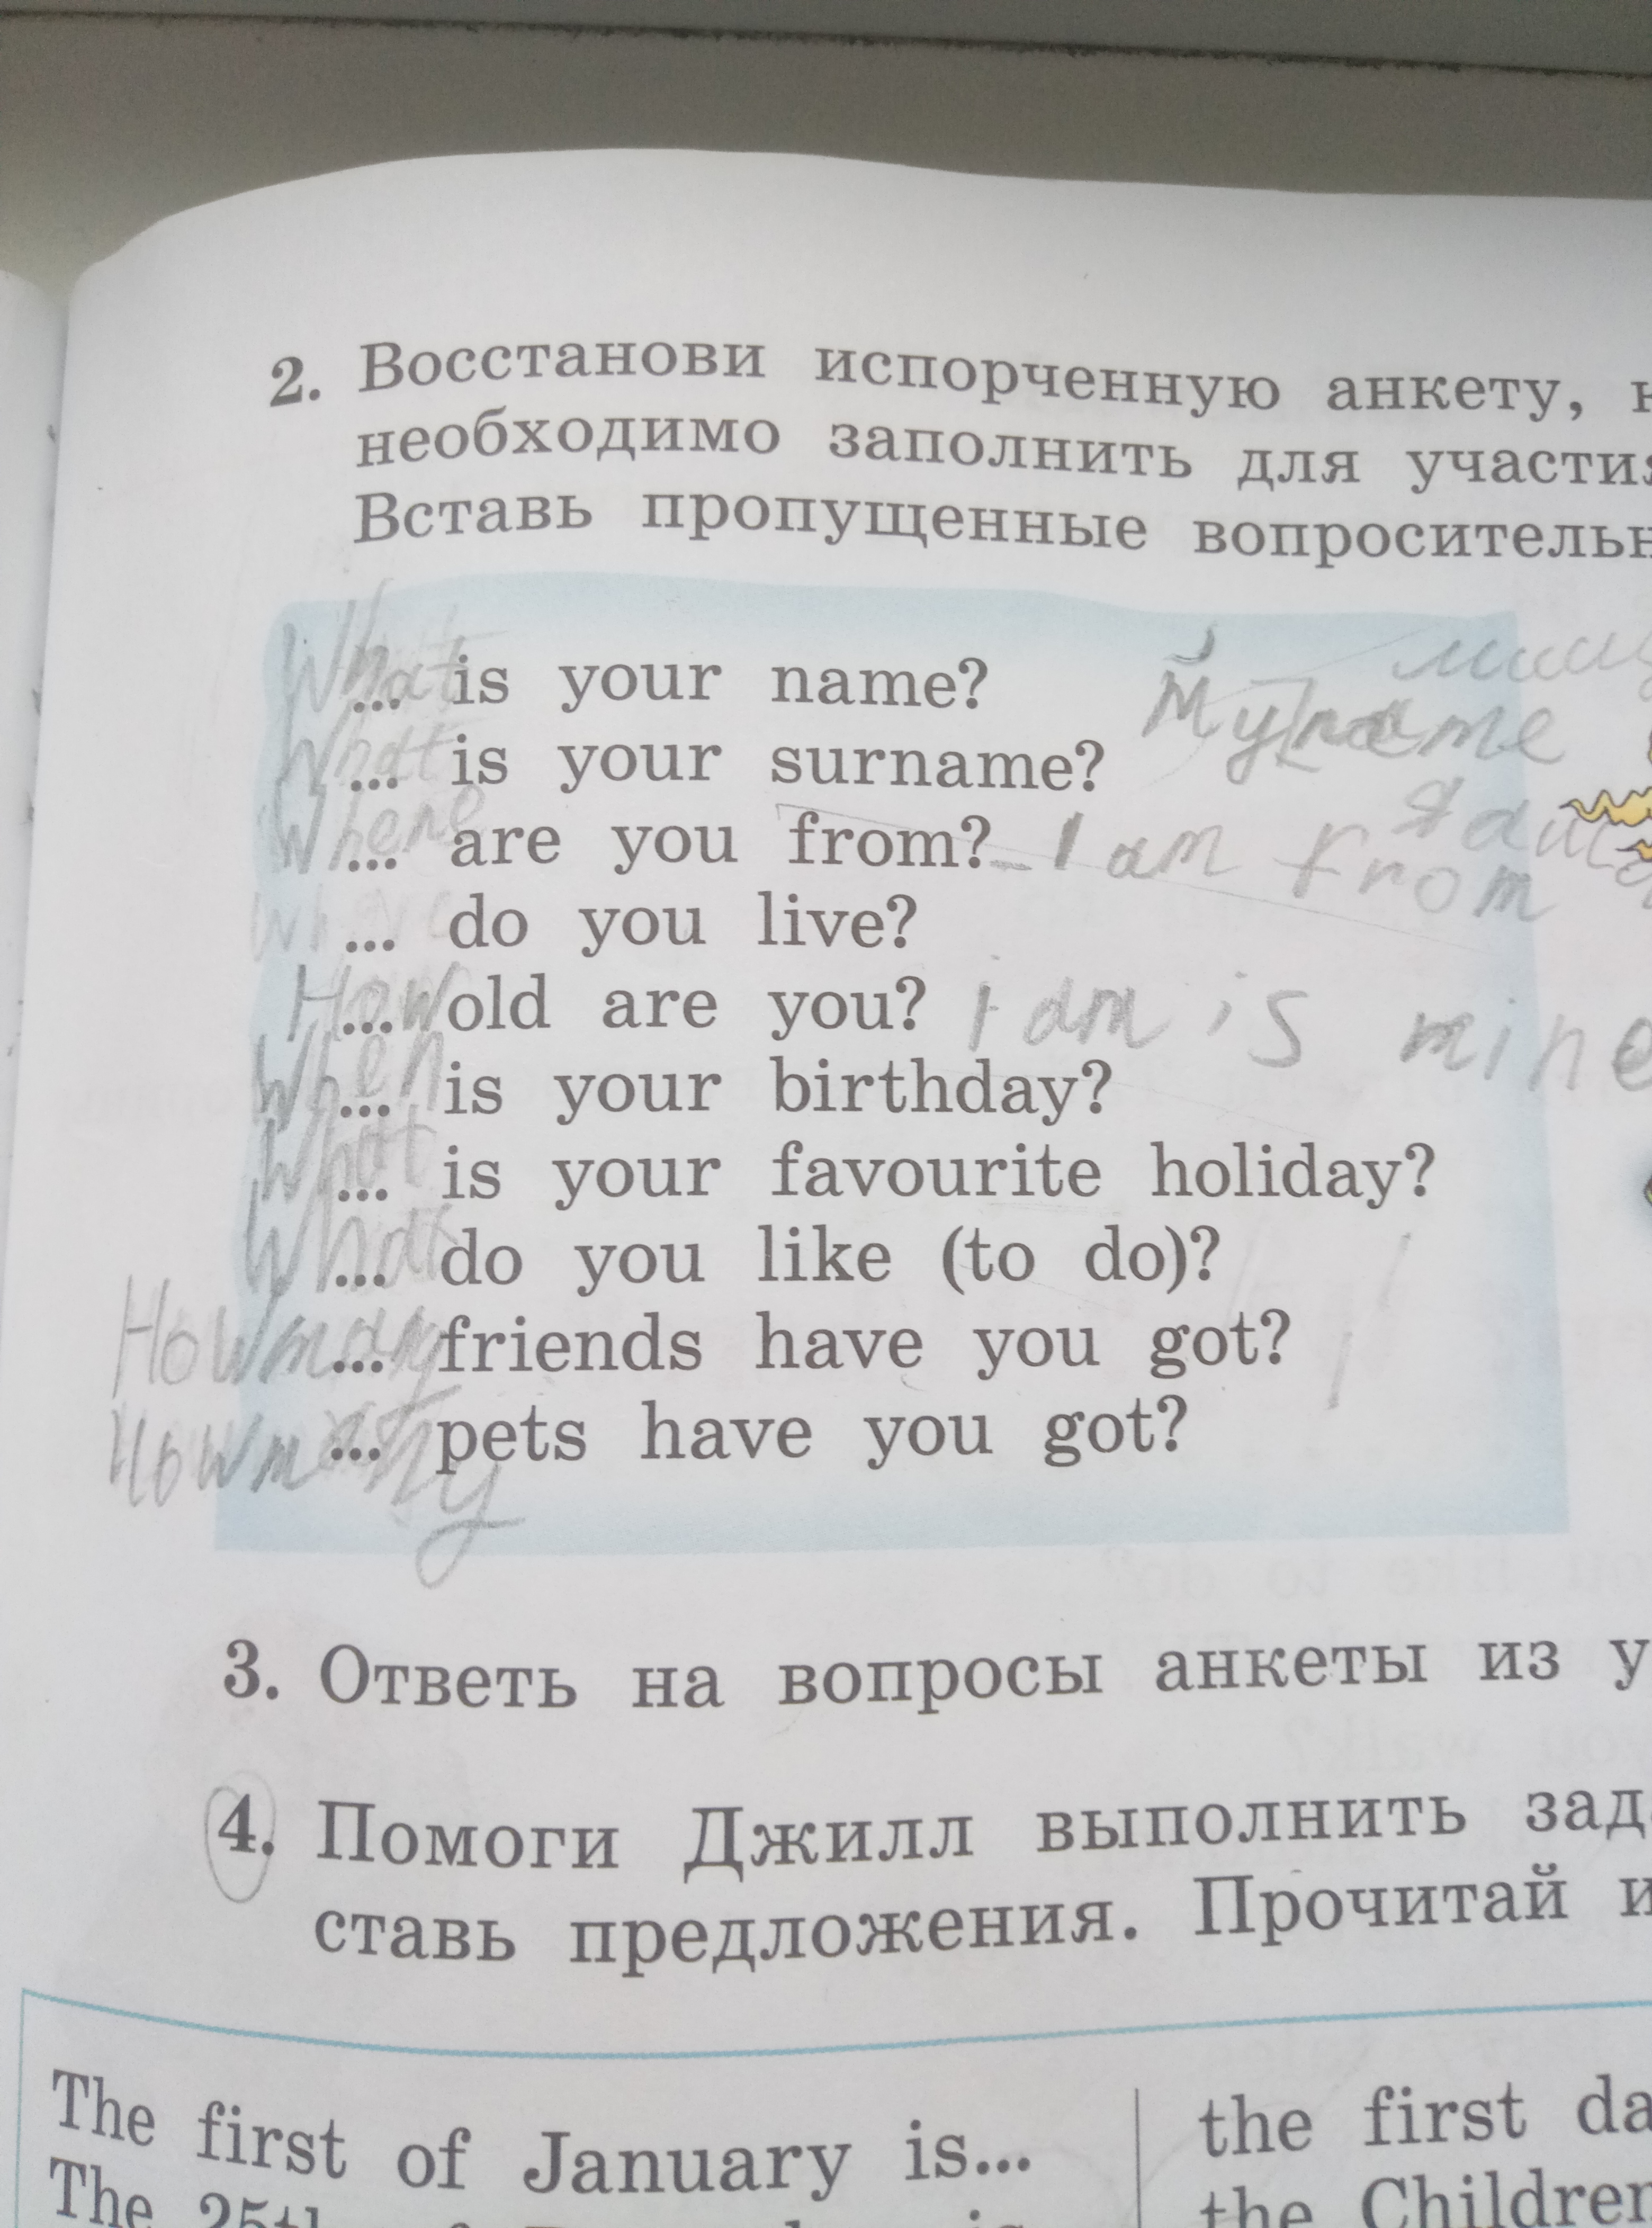 2. Восстанови испорченную анкету,
необходимо заполнить для участия
Вставь пропущенные вопросительн
What ... is your name? My name
What ... is your surname?
Where ... are you from? - I am from
... do you live?
How ... old are you? i am is mine
When ... is your birthday?
What ... is your favourite holiday?
What ... do you like (to do)?
How many ... friends have you got?
How many ... pets have you got?
3. Ответь на вопросы анкеты из у
4. Помоги Джилл выполнить зад
ставь предложения. Прочитай и
The first of January is... the first da
The 25th the Children